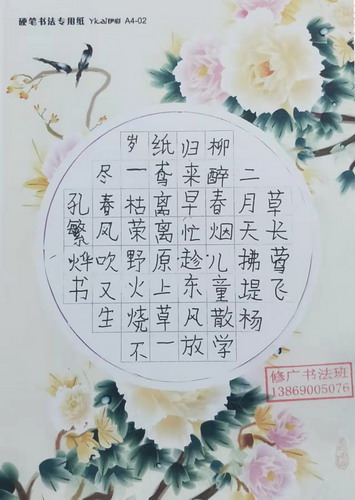 硬笔书法专用纸 Ykal伊彩 A4-02
草长莺飞
二月天拂堤杨
柳醉春烟儿童散学
归来早忙趁东风放
纸鸢离离原上草一
岁一枯荣野火烧不
尽春风吹又生
孔繁烨书
修广书法班
13869005076